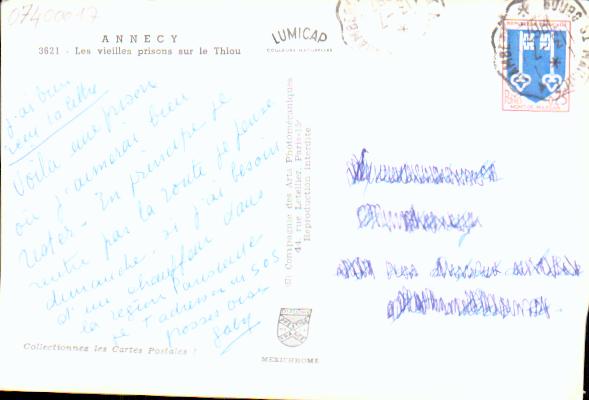 07400017
ANNECY
3621 - Les vieilles prisons sur le Thiou
LUMICAP
COULEURS NATURELLES
j'ai bien
reçu ta lettre
Voilà une prison
où j'aimerai bien
rester - En principe je
rentre par la route je pense
dimanche, si j'ai besoin
d'un chauffeur dans
la région Parisienne
je t'adresserai un S.O.S
grosses bises
Gaby
© Compagnie des Arts Photomécaniques
44, rue Letellier, Paris-15e
Reproduction interdite
Collectionnez les Cartes Postales !
MEXICHROME